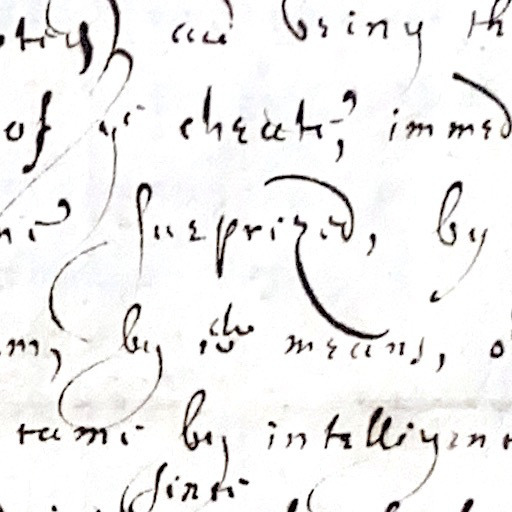 and bring th
of ye cheate, immed
surprized, by
m, by wch means, o
came by intelligen
since